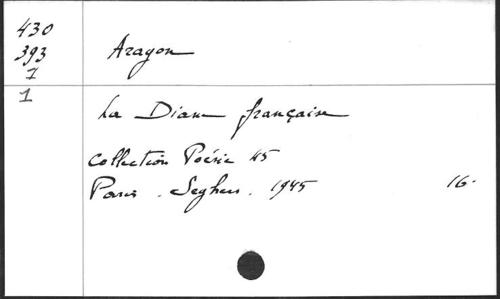 430
393
7
1
Aragon
La Diane française
Collection Poésie 45
Paris. Seghers. 1945 16.